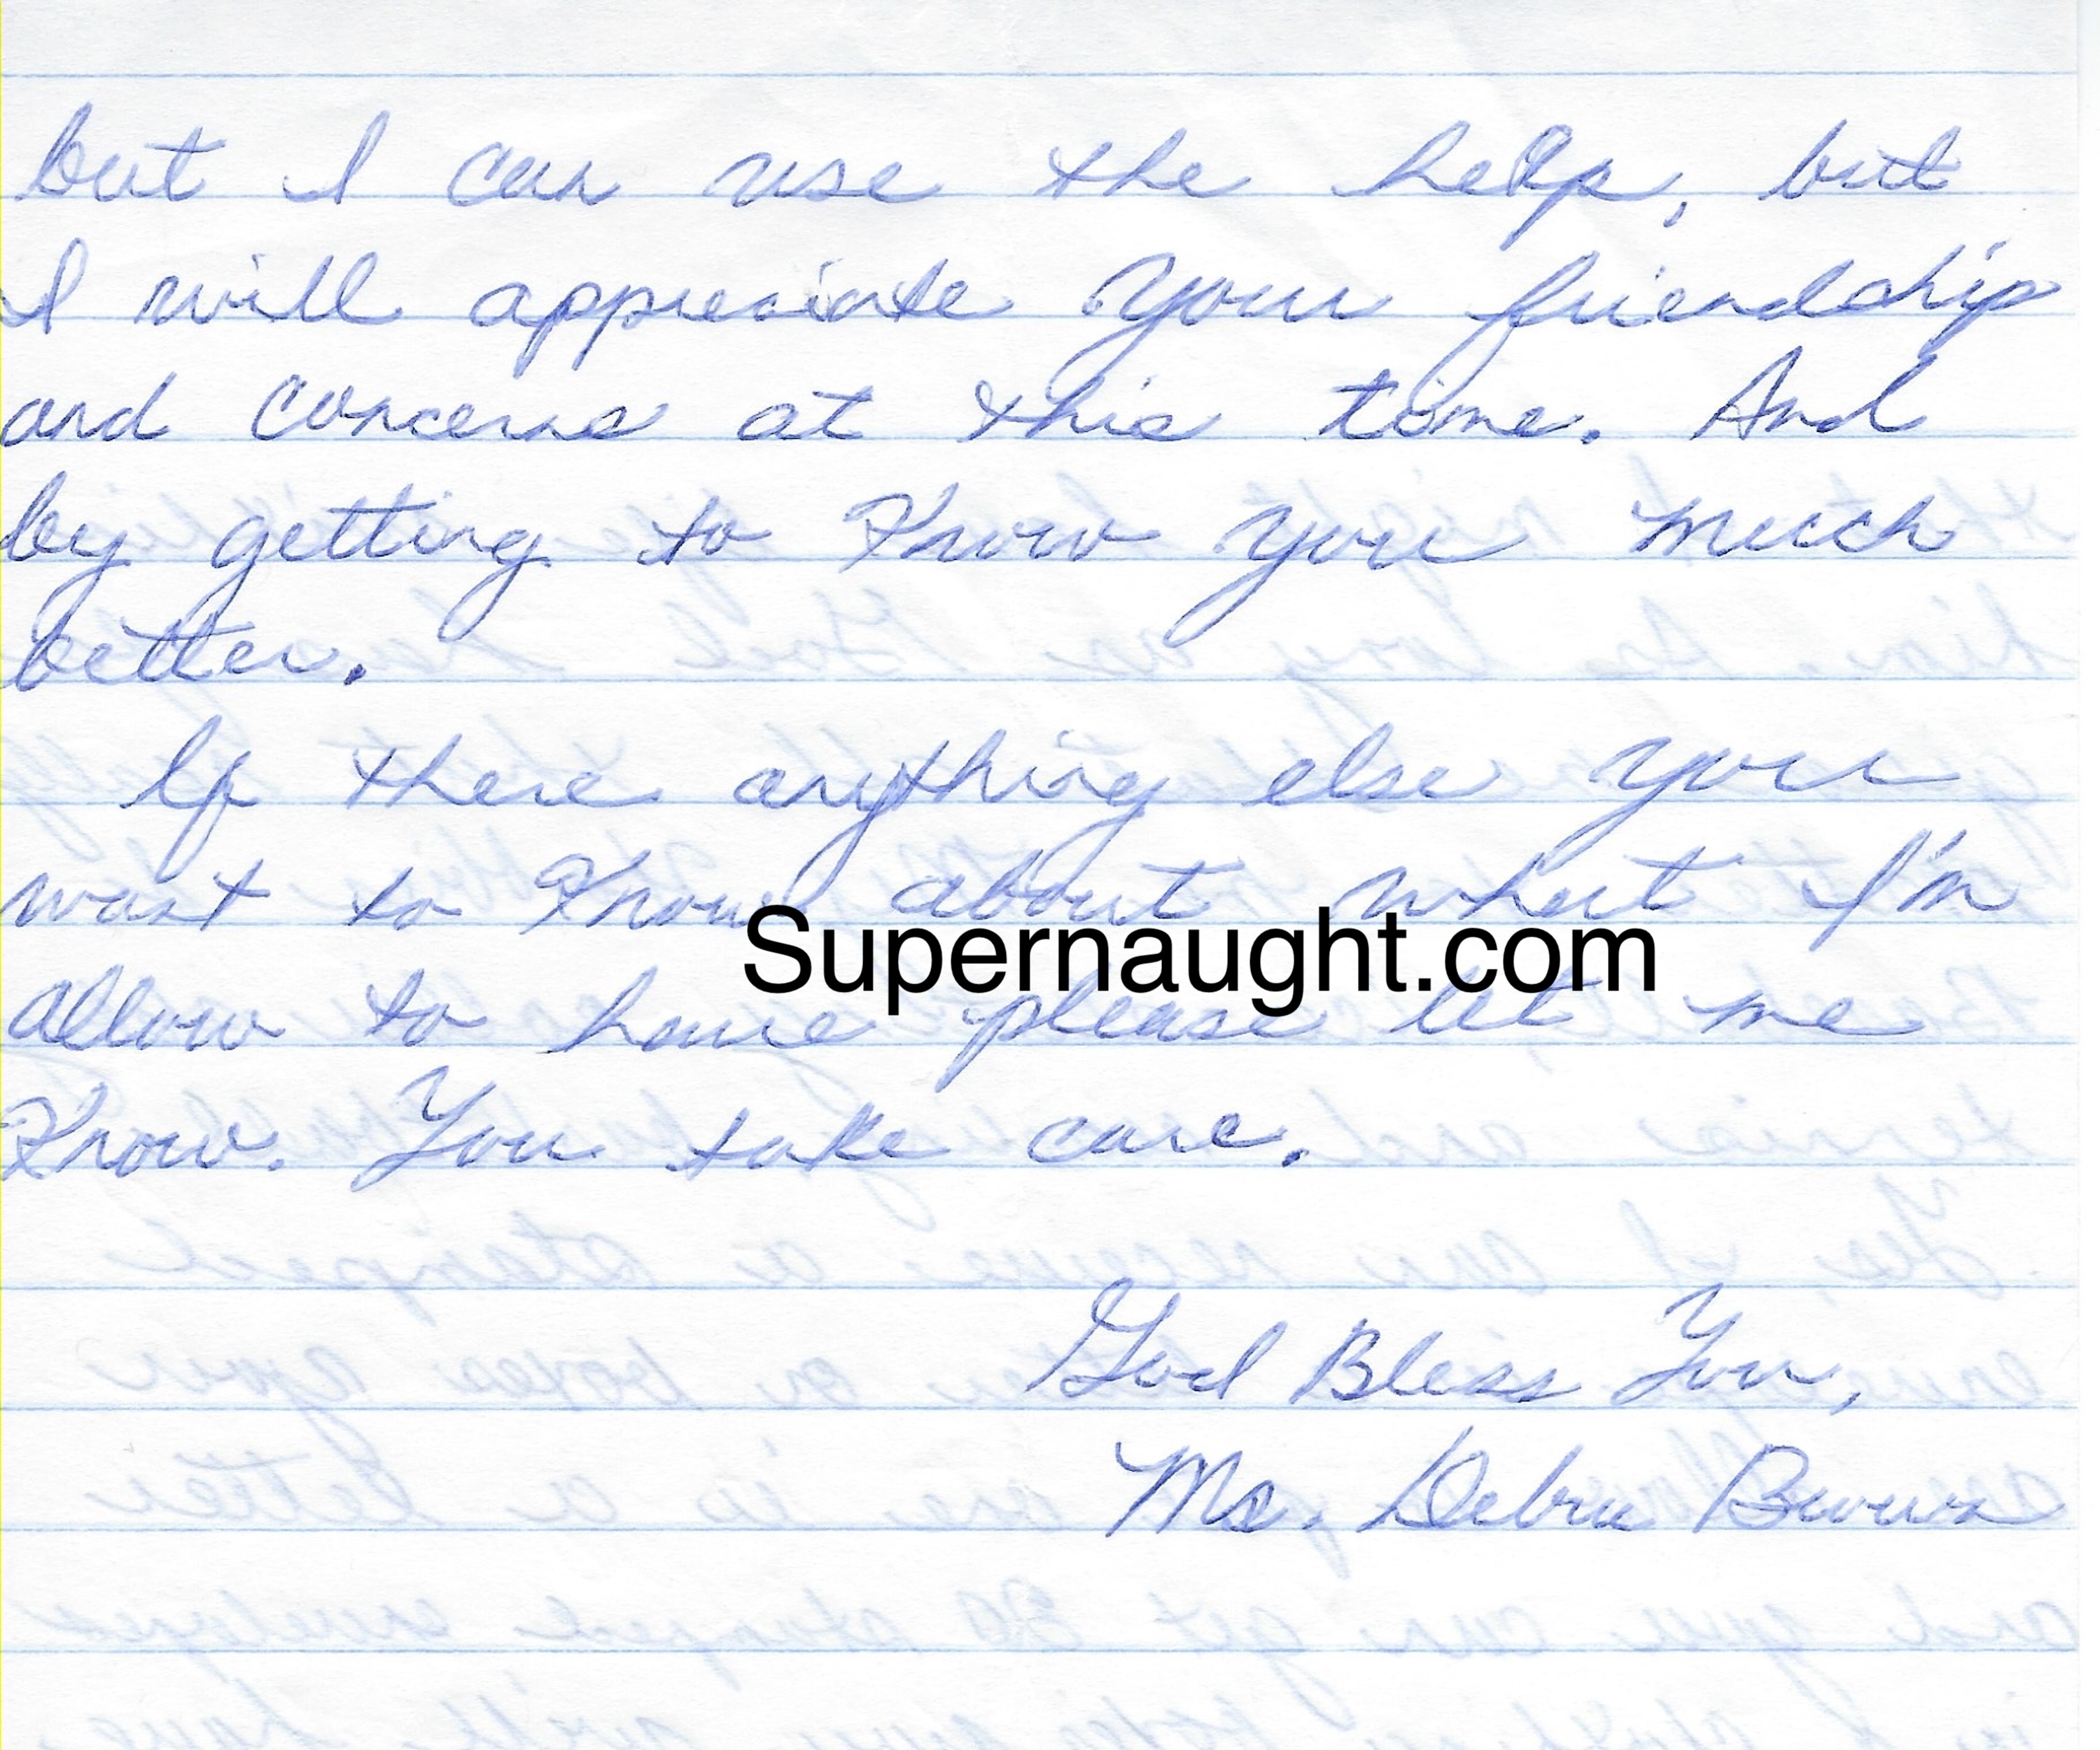 but I can use the help, but
I will appreciate your friendship
and concerns at this time. And
by getting to Know you much
better.
If there anything else you
want to Know about what I'm
Supernaught.com
allow to have please let me
Know. You take care.
God Bless You,
Ms. Debra Brown